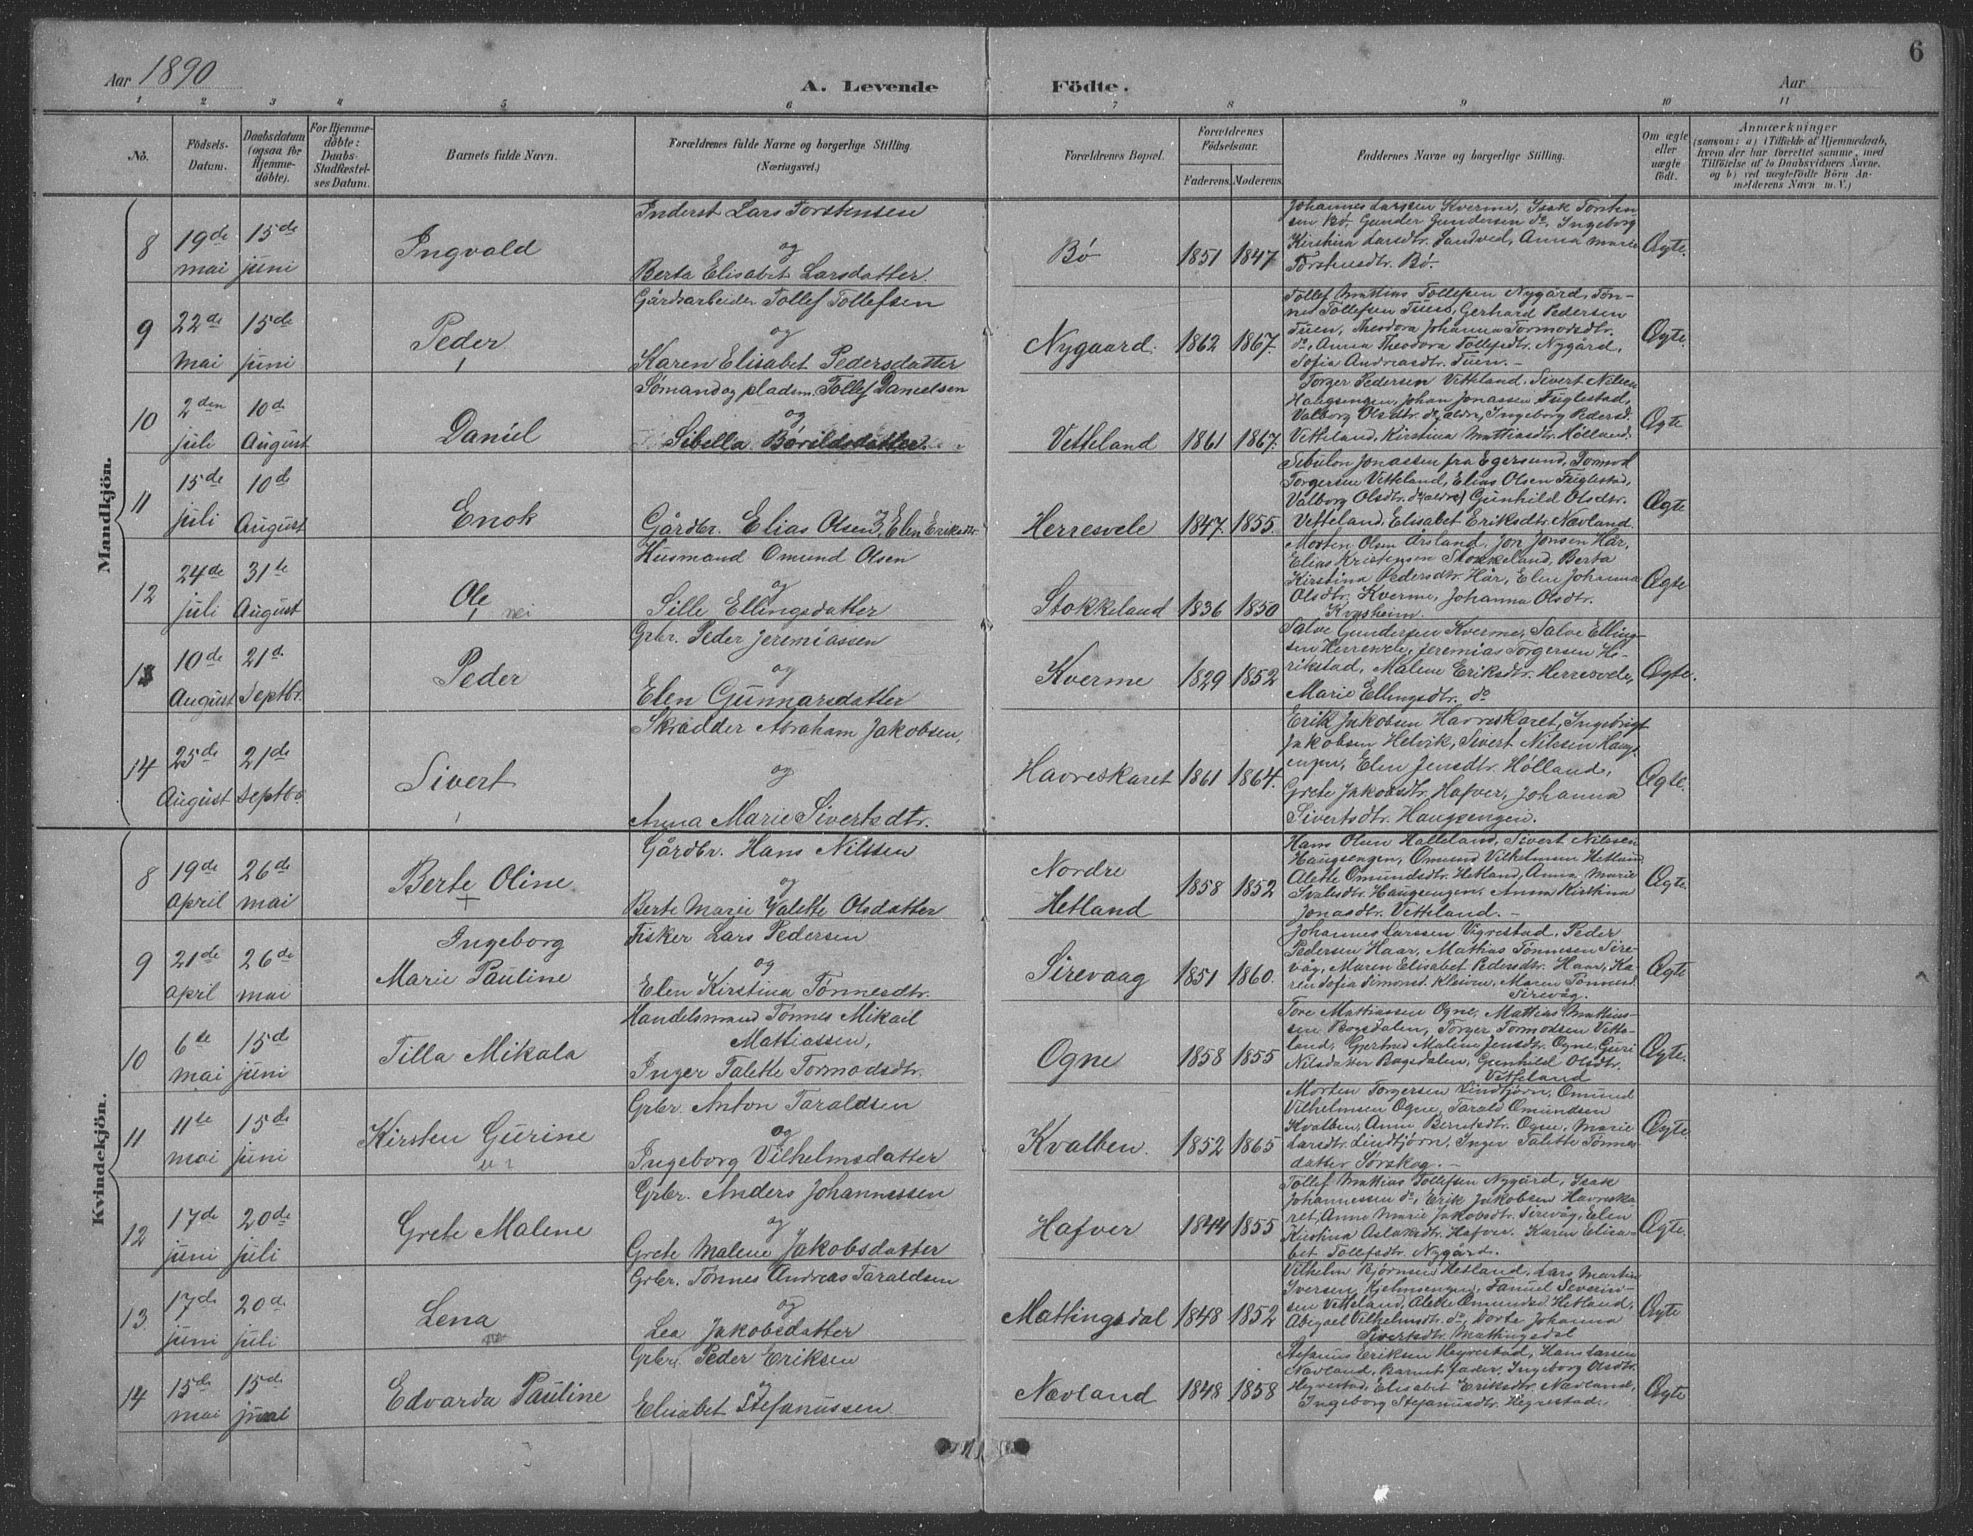 6
Aar 1890
A. Levende Födte.
Aar
1 2 3 4 5 6 7 8 9 10 11
No.
Födsels-Datum.
Daabsdatum (ogsaa for Hjemme-döbte).
For Hjemme-döbte: Daabs-Stadfæstel-ses Datum.
Barnets fulde Navn.
Forældrenes fulde Navne og borgerlige Stilling.
(Næringsvei.)
Forældrenes Bopæl.
Forældrenes Födselsaar.
Faderens. Moderens.
Faddernes Navne og borgerlige Stilling.
Om ægte eller uægte födt.
Anmærkninger
(saasom: a) i Tilfælde af Hjemmedaab,
hvem der har forrettet samme, med
Tilföielse af to Daabsvidners Navne,
og b) ved uægtefödte Börn An-
melderens Navn m. V.)
Mandkjön.
8 19de mai 15de juni Ingvald
Inderst Lars Torstensen
og
Berta Elisabet Larsdatter.
Bø 1851 1847
Johannes Larssen Kverme, Isak Torsten-
sen Bø, Gunder Gundersen do, Ingeborg
Kirstina Larsdtr. Sandved, Anna Marie
Torstensdtr. Bø.
Ægte.
9 22de mai 15de juni Peder
Gårdsarbeider Tollef Tollefsen
og
Karen Elisabet Pedersdatter
Nygaard. 1862 1867.
Tollef Mattias Tollefsen Nygård, Tøn-
nes Tollefsen Tuen, Gerhard Pedersen
Tuen, Theodora Johanna Tormodsdtr.
do, Anna Theodora Tollefsdtr. Nygård,
Sofia Andreasdtr. Tuen. -
Ægte.
10 2den juli 10de August Daniel
Sømand og pladsm. Tollef Danielsen
og
Sibella Børildsdatter.
Vetteland 1861 1867.
Torger Pedersen Vetteland, Sivert Nilsen
Haugsengen, Johan Jonassen Fuglestad,
Valborg Olsdtr. do, ældre, Ingeborg Pedersd.
Vetteland, Kirstina Mattiasdtr. Hølland.
Ægte
11 15de juli 10de August Enok
Gårdbr. Elias Olsen &, Elen Eriksdtr.
Herresvele 1847. 1855.
Sebulon Jonassen fra Egersund, Tormod
Torgersen Vetteland, Elias Olsen Fuglestad,
Valborg Olsdtr. do (ældre) Gunhild Olsdtr.
Vetteland, Elisabet Eriksdtr. Nævland.
Ægte
12 24de juli 31te August Ole
nei
Husmand Omund Olsen
og
Sille Ellingsdatter
Stokkeland 1836 1850
Morten Olsen Årsland, Jon Jonsen Hår,
Elias Kristensen Stokkeland, Berta
Kirstina Pedersdtr. Hår, Elen Johanna
Olsdtr. Kverme, Johanna Olsdtr.
Kvasheim.
Ægte
13 10de August 21de Septbr. Peder
Grbr. Peder Jeremiassen
og
Elen Gunnarsdatter
Kverme 1829 1852
Salve Gundersen Kverme, Salve Elling-
sen Herresvele, Jeremias Torgersen He-
rikstad, Malene Eriksdtr. Herresvele,
Marie Ellingsdtr. do
Ægte.
14 25de August 21de Septbr Sivert
Skrædder Abraham Jakobsen,
og
Anna Marie Sivertsdtr.
Havreskaret 1861 1864.
Erik Jakobsen Havreskaret, Ingebrigt
Jakobsen Helvik, Sivert Nilssen Haugs-
engen, Elen Jensdtr. Hølland,
Grete Jakobsdtr. Hafver, Johanna
Sivertsdtr. Haugsengen.
Ægte.
Kvindekjön.
8 19de april 26de mai Berte Oline
Gårdbr. Hans Nilssen
og
Berte Marie Valette Olsdatter
Nordre Hetland 1858 1852
Hans Olsen Halleland, Sivert Nilssen
Haugsengen, Omund Vilhelmsen Hetland
Alette Omundsdtr. Hetland, Anna Marie
Svalesdtr. Haugsengen, Anna Kirstina
Jonasdtr. Vetteland. -
Ægte.
9 21de april 26de mai Ingeborg Marie Pauline
Fisker Lars Pedersen
og
Elen Kirstina Tønnesdtr.
Sirevaag 1851 1860.
Johannes Larssen Vigrestad, Peder
Pedersen Haar, Mathias Tønnesen Sire-
våg, Maren Elisabet Pedersdtr. Haar, Ka-
ren Sofia Simonsd. Kleiven, Maren Tønnesd.
Sirevåg.
Ægte
10 6te mai 15de juni Tilla Mikala
Handelsmand Tønnes Mikail
Mattiassen,
Inger Talette Tormodsdtr.
Ogne 1858 1855
Tore Mattiassen Ogne, Mattias Mattias-
sen Bogsdalen, Torger Tormodsen Vette-
land, Gjertrud Malene Jensdtr. Ogne, Guri
Nilsdatter Bagsdalen, Gunhild Olsdtr.
Vetteland
Ægte.
11 11te mai 15de juni Kirsten Gurine
Grbr. Anton Taraldsen
og
Ingeborg Vilhelmsdatter
Kvalben. 1852 1865
Morten Torgersen Lindtjørn, Omund
Vilhelmsen Ogne, Tarald Omundsen
Kvalben, Anne Berntsdtr. Ogne, Marie
Larsdtr. Lindtjørn, Inger Talette Tønnes-
datter Sørskog. -
Ægte
12 17de juni 20de juli Grete Malene
Grbr. Anders Johannessen
og
Grete Malene Jakobsdatter
Hafver 1844 1855
Tollef Mattias Tollefsen Nygård, Isak
Johannessen do, Erik Jakobsen Havreska-
ret, Anne Marie Jakobsdtr. Sirevåg, Elen
Kirstina Aslaksdtr. Hafver, Karen Elisa-
bet Tollefsdtr. Nygård.
Ægte.
13. 17de juni 20de juli Lena
Grbr. Tønnes Andreas Taraldsen
og
Lea Jakobsdatter
Mattingsdal 1848 1852
Vilhelm Bjørnsen Hetland, Lars Martin
Iversen Hjelmsengen, Samuel Severin-
sen Vetteland, Alette Omundsd. Hetland,
Abigael Vilhelmsdtr. do, Dorte Johanna
Sivertsdtr. Mattingsdal
Ægte
14 15de mai 15de juni Edvarda Pauline
Grbr. Peder Eriksen
og
Elisabet Stefanussen
Nævland 1848 1858
Stefanus Eriksen Hegrestad, Hans Larsen
Nævland, Bernt Jader, Ingeborg Olsdtr.
Hegrestad, Elisabet Eriksdtr. Nævland,
Ingeborg Stefanusdtr. Hegrestad.
Ægte